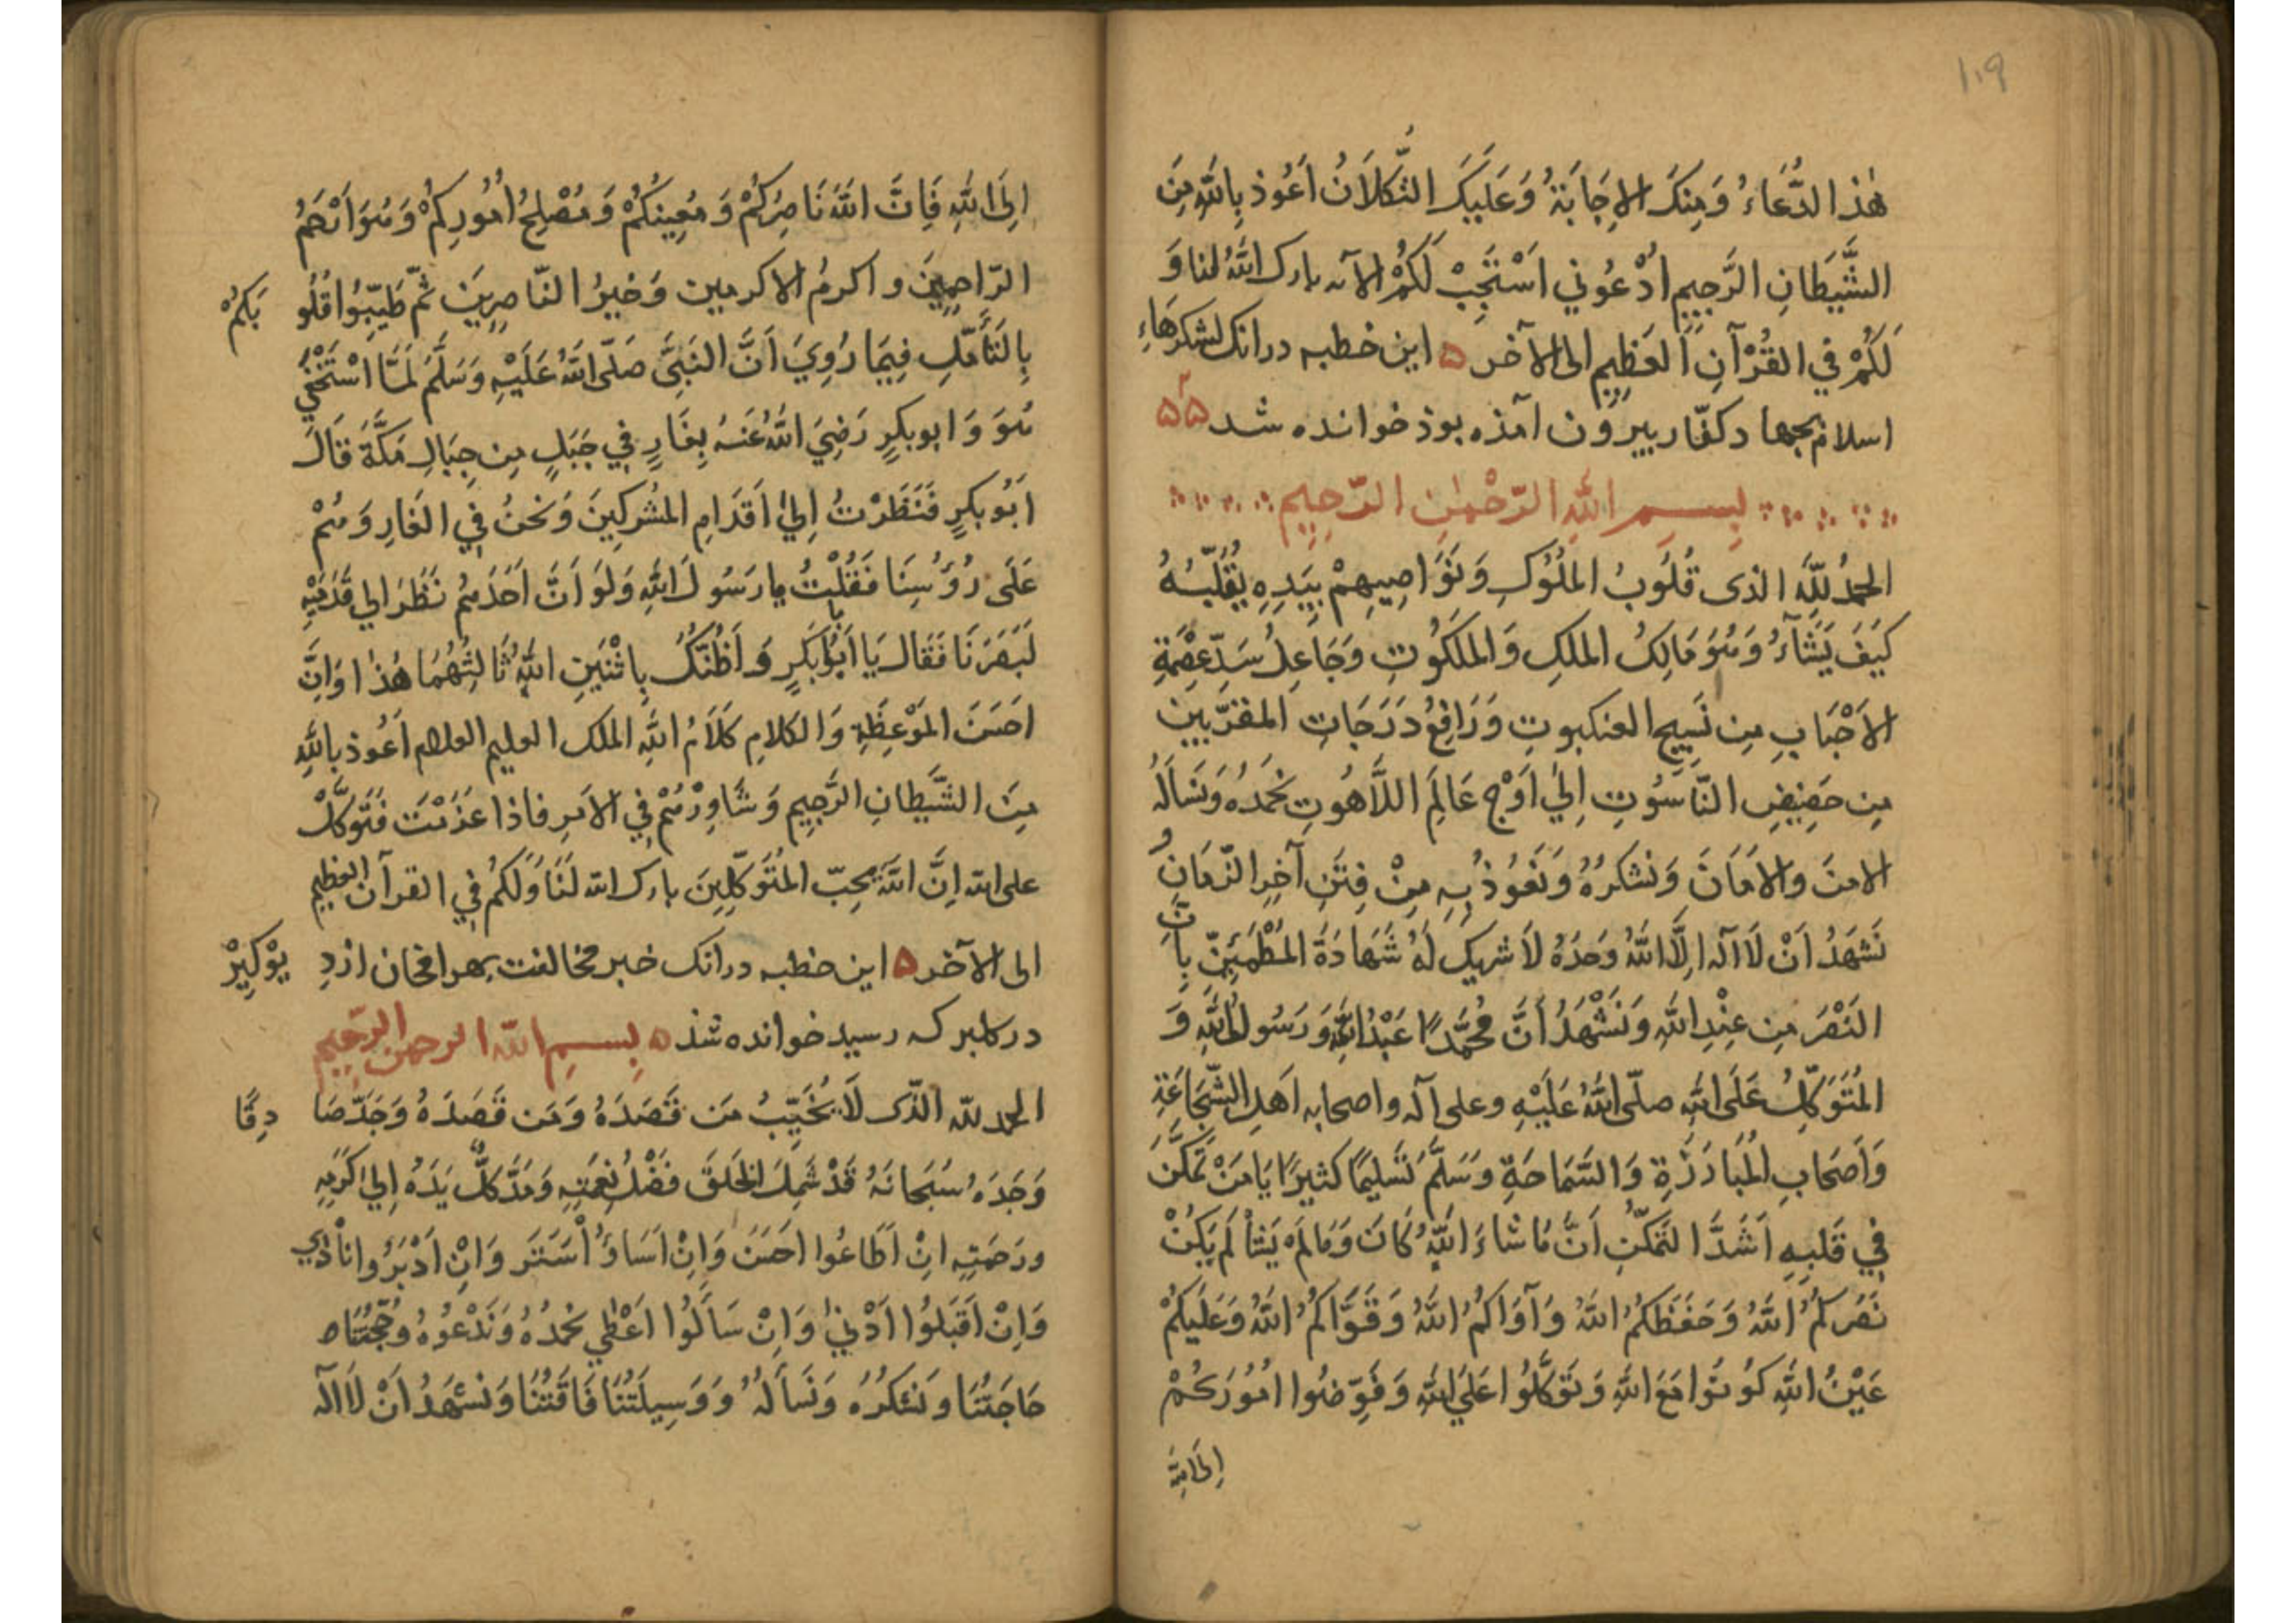 ۱۰۹
هٰذا الدُّعَاءُ وَمِنكَ الاِجَابَةُ وَعَلَيكَ التُّكلَانُ اَعُوذ بِاللّٰهِ مِنَ
الشَّيطَانِ الرَّجِيمِ ادْعُوني اَسْتَجِبْ لَكُمْ الآيه بارك اللّٰهُ لنا وَ
لَكُمْ في القُرْآنِ العَظِيمِ الى الآخر ۵ اين خطبه درانك لشكرهَاءِ
اسلام بجهاد كفّار بيرون آمذه بوذ خوانده شد
بِسمِ اللّٰهِ الرّحْمٰنِ الرّحِيمِ
الحمدُ للّٰه الذى قُلُوبُ الملُوكِ وَنَوَاصِيهِمْ بِيَدِهِ يُقَلّبُهُ
كَيفَ يَشَآءُ وَهُوَ مَالِكُ الملكِ وَالملَكُوتِ وَجَاعِلُ سَدِّ عِصْمَةِ
الاَحْبَابِ مِن نَسِيجِ العنكبوتِ وَرَافِعُ دَرَجَاتِ المقرّبين
مِن حَضِيضِ النّاسُوتِ اِلىٰ اَوْجِ عَالَمِ اللَّاهُوتِ نَحْمَدُهُ وَنَسأَلُهُ
الامنَ والامَانَ وَنَشكرُهُ وَنَعُوذ بِهِ مِنْ فِتَنِ آخِرِ الزّمَانِ وَ
نَشهَدُ اَنْ لَا اله اِلَّا اللّٰهُ وَحدَهُ لَا شريك لَهُ شَهَادَةَ المُطْمَئِنِّ بِاَنَّ
النَصْرَ مِن عِنْدِ اللّٰهِ وَنَشْهَدُ اَنَّ مُحَمَّدًا عَبْدُ اللّٰهِ وَرَسُولُ اللّٰهِ وَ
المُتَوَكِّلُ عَلَى اللّٰهِ صلّى اللّٰهُ عَلَيْهِ وعلى آله واصحابه اَهلِ الشّجَاعَةِ
وَاَصحَابِ المُبَارَزَةِ وَالسَّمَاحَةِ وَسَلَّمَ تَسليمًا كثيرًا يَا مَنْ تمَكَّنَ
في قَلبِهِ اَشَدَّ التمكّنِ اَنَّ مَا شاءَ اللّٰهُ كَانَ وَمَا لَمْ يَشأ لَم يَكُنْ
نَصَركمُ اللّٰهُ وَحَفَظَكمُ اللّٰهُ وَآوَاكمُ اللّٰهُ وَقَوَّاكمُ اللّٰهُ وَعَلَيكُمْ
عَيْنُ اللّٰهِ كُونُوا مَعَ اللّٰهِ وَتَوَكَّلُوا عَلَى اللّٰهِ وَفَوِّضُوا اُمُورَكُمْ
اِلَى اللّٰهِ
اِلَى اللّٰهِ فَاِنَّ اللّٰهَ نَاصِرُكُمْ وَمُعِينكُمْ وَمُصْلِحُ اُمُورِكُمْ وَهُوَ اَرْحَمُ
الرّاحِمِينَ واكرمُ الاكرمين وَخيرُ النّاصِرِينَ ثمّ طَيِّبُوا قُلُوبَكمْ
بِالتَأَمُّلِ فِيمَا رُوِيَ اَنَّ النّبِيَّ صَلّى اللّٰهُ عَلَيْهِ وَسَلَّمَ لَمَّا اسْتَخْفَى
هُوَ وَابوبكرٍ رَضِيَ اللّٰهُ عَنهُ بِغَارٍ في جَبَلٍ مِن جِبَالِ مَكَّةَ قَالَ
اَبُو بكرٍ فَنَظَرْتُ اِلىٰ اَقدَامِ المُشركِينَ وَنَحنُ في الغَارِ وَهُمْ
عَلَى رُؤُسِنَا فَقُلْتُ يا رَسُولَ اللّٰهِ وَلَو اَنَّ اَحَدَهُم نَظَرَ الى قَدَمَيْهِ
لَبَصَرَنَا فَقَالَ يَا اَبَا بَكرٍ وَ اَظُنّكَ بِاثْنَينِ اللّٰهُ ثَالِثُهُمَا هٰذا وَاِنَّ
احَسَنَ المَوْعِظَةِ وَالكلامِ كَلَامُ اللّٰهِ الملك العليم العلام اَعُوذ بِاللّٰهِ
مِنَ الشَّيطانِ الرَّجِيمِ وَشَاوِرْهُمْ في الاَمرِ فاذا عَزَمْتَ فَتَوَكَّلْ
على اللّٰه اِنَّ اللّٰهَ يُحِبّ المُتَوَكّلِينَ بارك اللّٰه لَنَا وَلَكمُ في القرآن العظيم
الى الآخر ۵ اين خطبه درانك خبر مخالفت بهرامخان از ديوْكِيرْ
در كلبركه رسيد خوانده شذ ۵ بِسمِ اللّٰه الرحمن الرّحِيم
الحمد للّٰه الّذى لَا يُخَيِّبُ مَن قَصَدَهُ وَمَن قَصَدَهُ وَجَدَّ صَادِقًا
وَجَدَهُ سُبحَانَهُ قَدْ شَمِلَ الخَلقَ فَضْلُ نِعمَتِهِ وَمَدَّ كلٌّ يَدَهُ اِلىٰ كَرَمِهِ
ورَحمَتِهِ اِنْ اَطَاعُوا احَسَنَ وَاِنْ اَسَاؤُا سَتَرَ وَاِنْ اَدْبَرُوا نَادٰي
وَاِنْ اَقبَلُوا اَدْنىٰ وَاِنْ سَأَلُوا اَعْطٰي نَحمدُهُ وَنَدْعُوهُ وَحُجّتُنَا
حَاجَتُنَا وَنَشكرُهُ وَنَسأَلُهُ وَوَسِيلَتُنَا فَاقَتُنَا وَنَشهَدُ اَنْ لَا اله